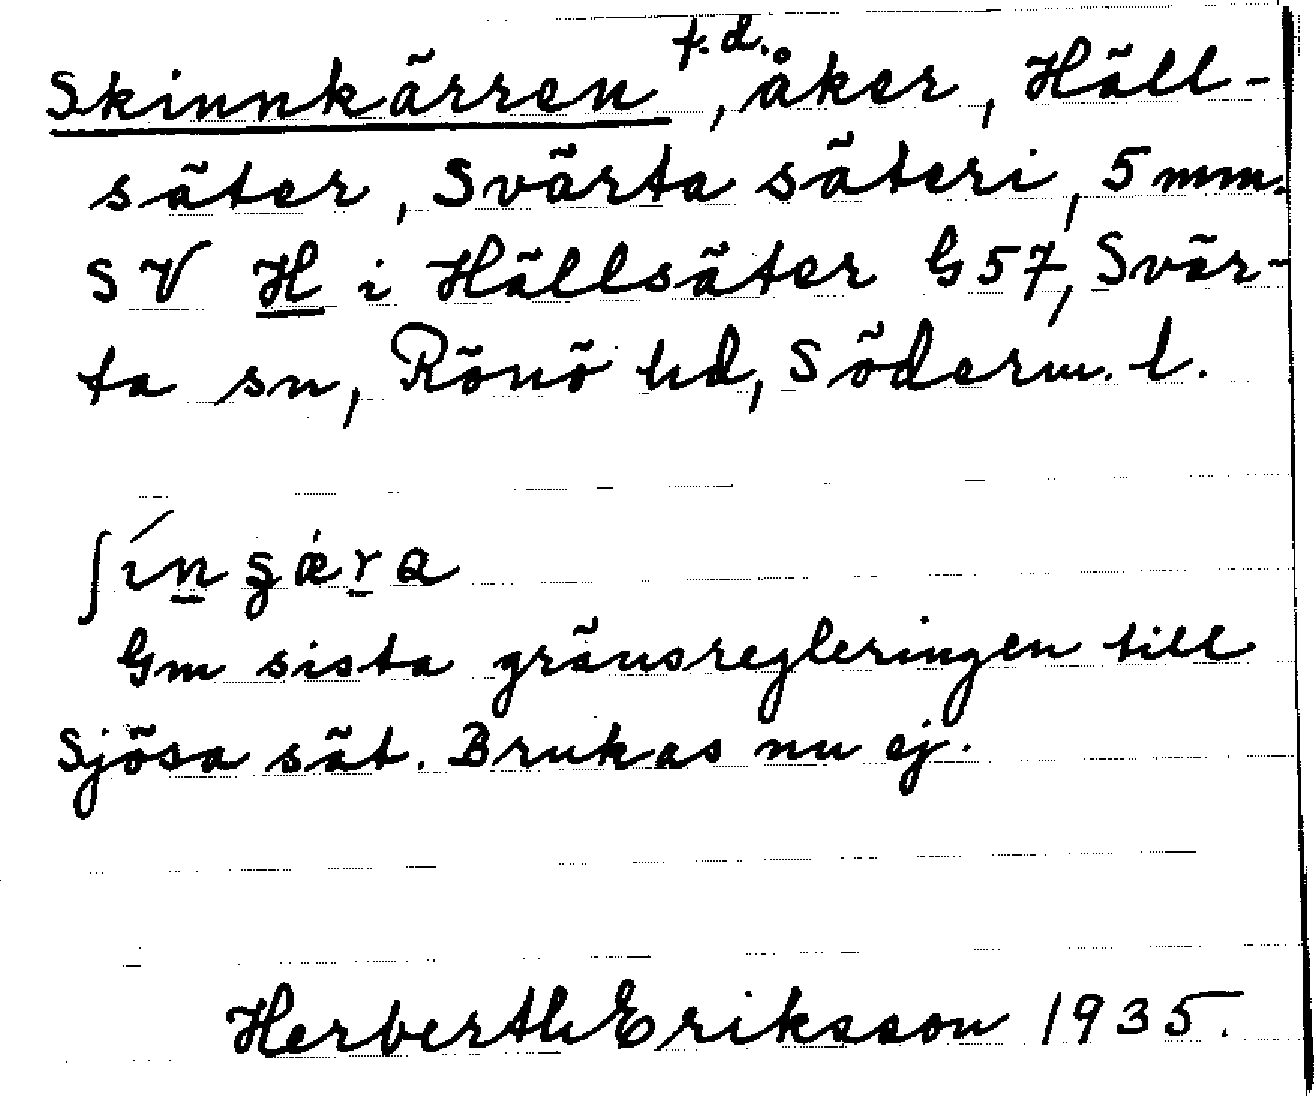 Skinnkärren, f.d. åker, Häll-
säter, Svärta säteri, 5 mm.
SV H i Hällsäter G57, Svär-
ta sn, Rönö hd, Söderm. l.
Gm sista gränsregleringen till
Sjösa sät. Brukas nu ej.
Herberth Eriksson 1935.